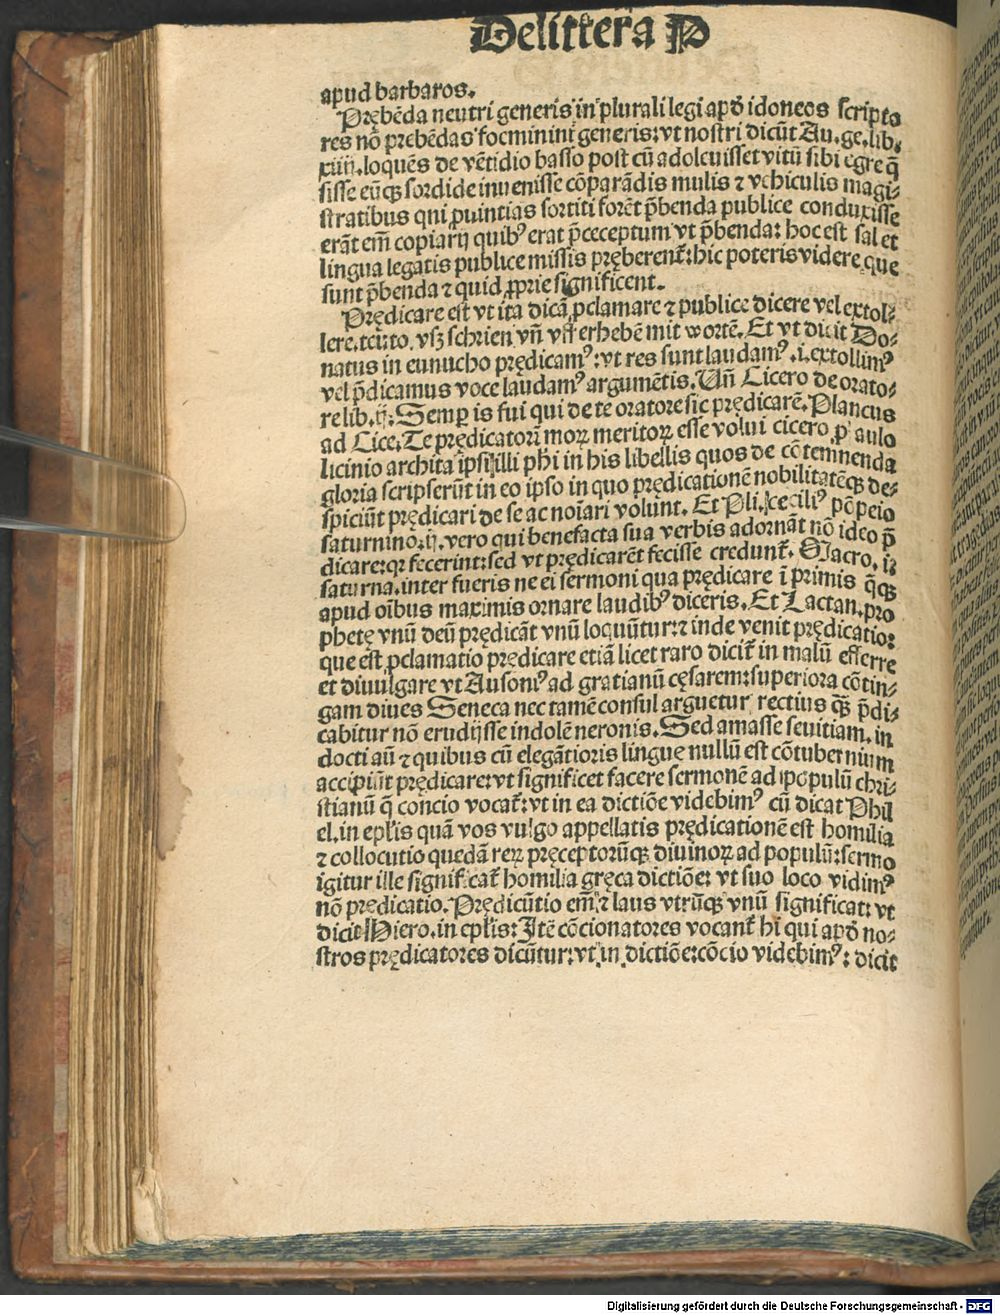 De littera P
apud barbaros.
Prębẽda neutri generis in plurali legi apð idoneos scripto
res nõ prebẽdas foeminini generis: vt nostri dicũt Au. ge. lib.
xiiij. loquẽs de vẽtidio basso post cũ adoleuisset vitũ sibi egre q̃
sisse eũqȝ sordide inuenisse cõparãdis mulis ⁊ vehiculis magi⸗
stratibus qui ꝓuintias sortiti forẽt p̃benda publice conduxisse
erãt em̃ copiarij quibꝰ erat p̃ceceptum vt p̃benda: hoc est sal et
lingua legatis publice missis pręberent̃: hic poteris videre que
sunt p̃benda ⁊ quid ꝓprie significent.
Prędicare est vt ita dicã ꝓclamare ⁊ publice dicere vel extol⸗
lere. teuto. vsȝ schrien vñ vff erhebẽ mit wortẽ. Et vt dicit Do⸗
natus in eunucho prędicamꝰ: vt res sunt laudamꝰ .i. extollimꝰ
vel p̃dicamus voce laudamꝰ argumẽtis. Uñ Cicero de orato⸗
re lib. ij: Semꝑ is fui qui de te oratore sic prędicarẽ. Plancus
ad Cice. Te prędicatorẽ moꝝ meritoꝝ esse volui cicero ꝓ aulo
licinio archita ipsi illi phi in his libellis quos de cõtemnenda
gloria scripserũt in eo ipso in quo prędicationẽ nobilitatẽqȝ de⸗
spiciũt prędicari de se ac noiari volunt. Et Pli. cecilꝰ põpeio
saturnino. ij. vero qui benefacta sua verbis adornãt nõ ideo p̃
dicare: qꝛ fecerint: sed vt prędicarẽt fecisse credunt̃. Macro. i.
saturna. inter fueris ne ei sermoni qua prędicare ĩ primis q̃qȝ
apud oĩbus maximis ornare laudibꝰ diceris. Et Lactan. pro
phetę vnũ deũ prędicãt vnũ loquũtur: ⁊ inde venit prędicatio:
que est ꝓclamatio prędicare etiã licet raro dicit̃ in malũ efferre
et diuulgare vt Ausoniꝰ ad gratianũ cęsarem: superiora cõtin⸗
gam diues Seneca nec tamẽ consul arguetur rectius qȝ̃ p̃di⸗
cabitur nõ erudijsse indolẽ neronis. Sed amasse seuitiam. in
docti aũt ⁊ quibus cũ elegãtioris lingue nullũ est cõtubernium
accipiũt prędicare: vt significet facere sermonẽ ad populũ chri⸗
stianũ q̃ concio vocat̃: vt in ea dictiõe videbimꝰ cũ dicat Phil
el. in epl̃is quã vos vulgo appellatis prędicationẽ est homilia
⁊ collocutio quedã reꝝ pręceptorũqȝ diuinoꝝ ad populũ: sermo
igitur ille significat̃ homilia gręca dictiõe: vt suo loco vidimꝰ
nõ prędicatio. Prędicũtio em̃ ⁊ laus vtrũqȝ vnũ significat: vt
dicit Hiero. in epl̃is: Itẽ cõcionatores vocant̃ hi qui apð no⸗
stros prędicatores dicũtur: vt in dictiõe: cõcio videbimꝰ: dicit
Digitalisierung gefördert durch die Deutsche Forschungsgemeinschaft - DFG